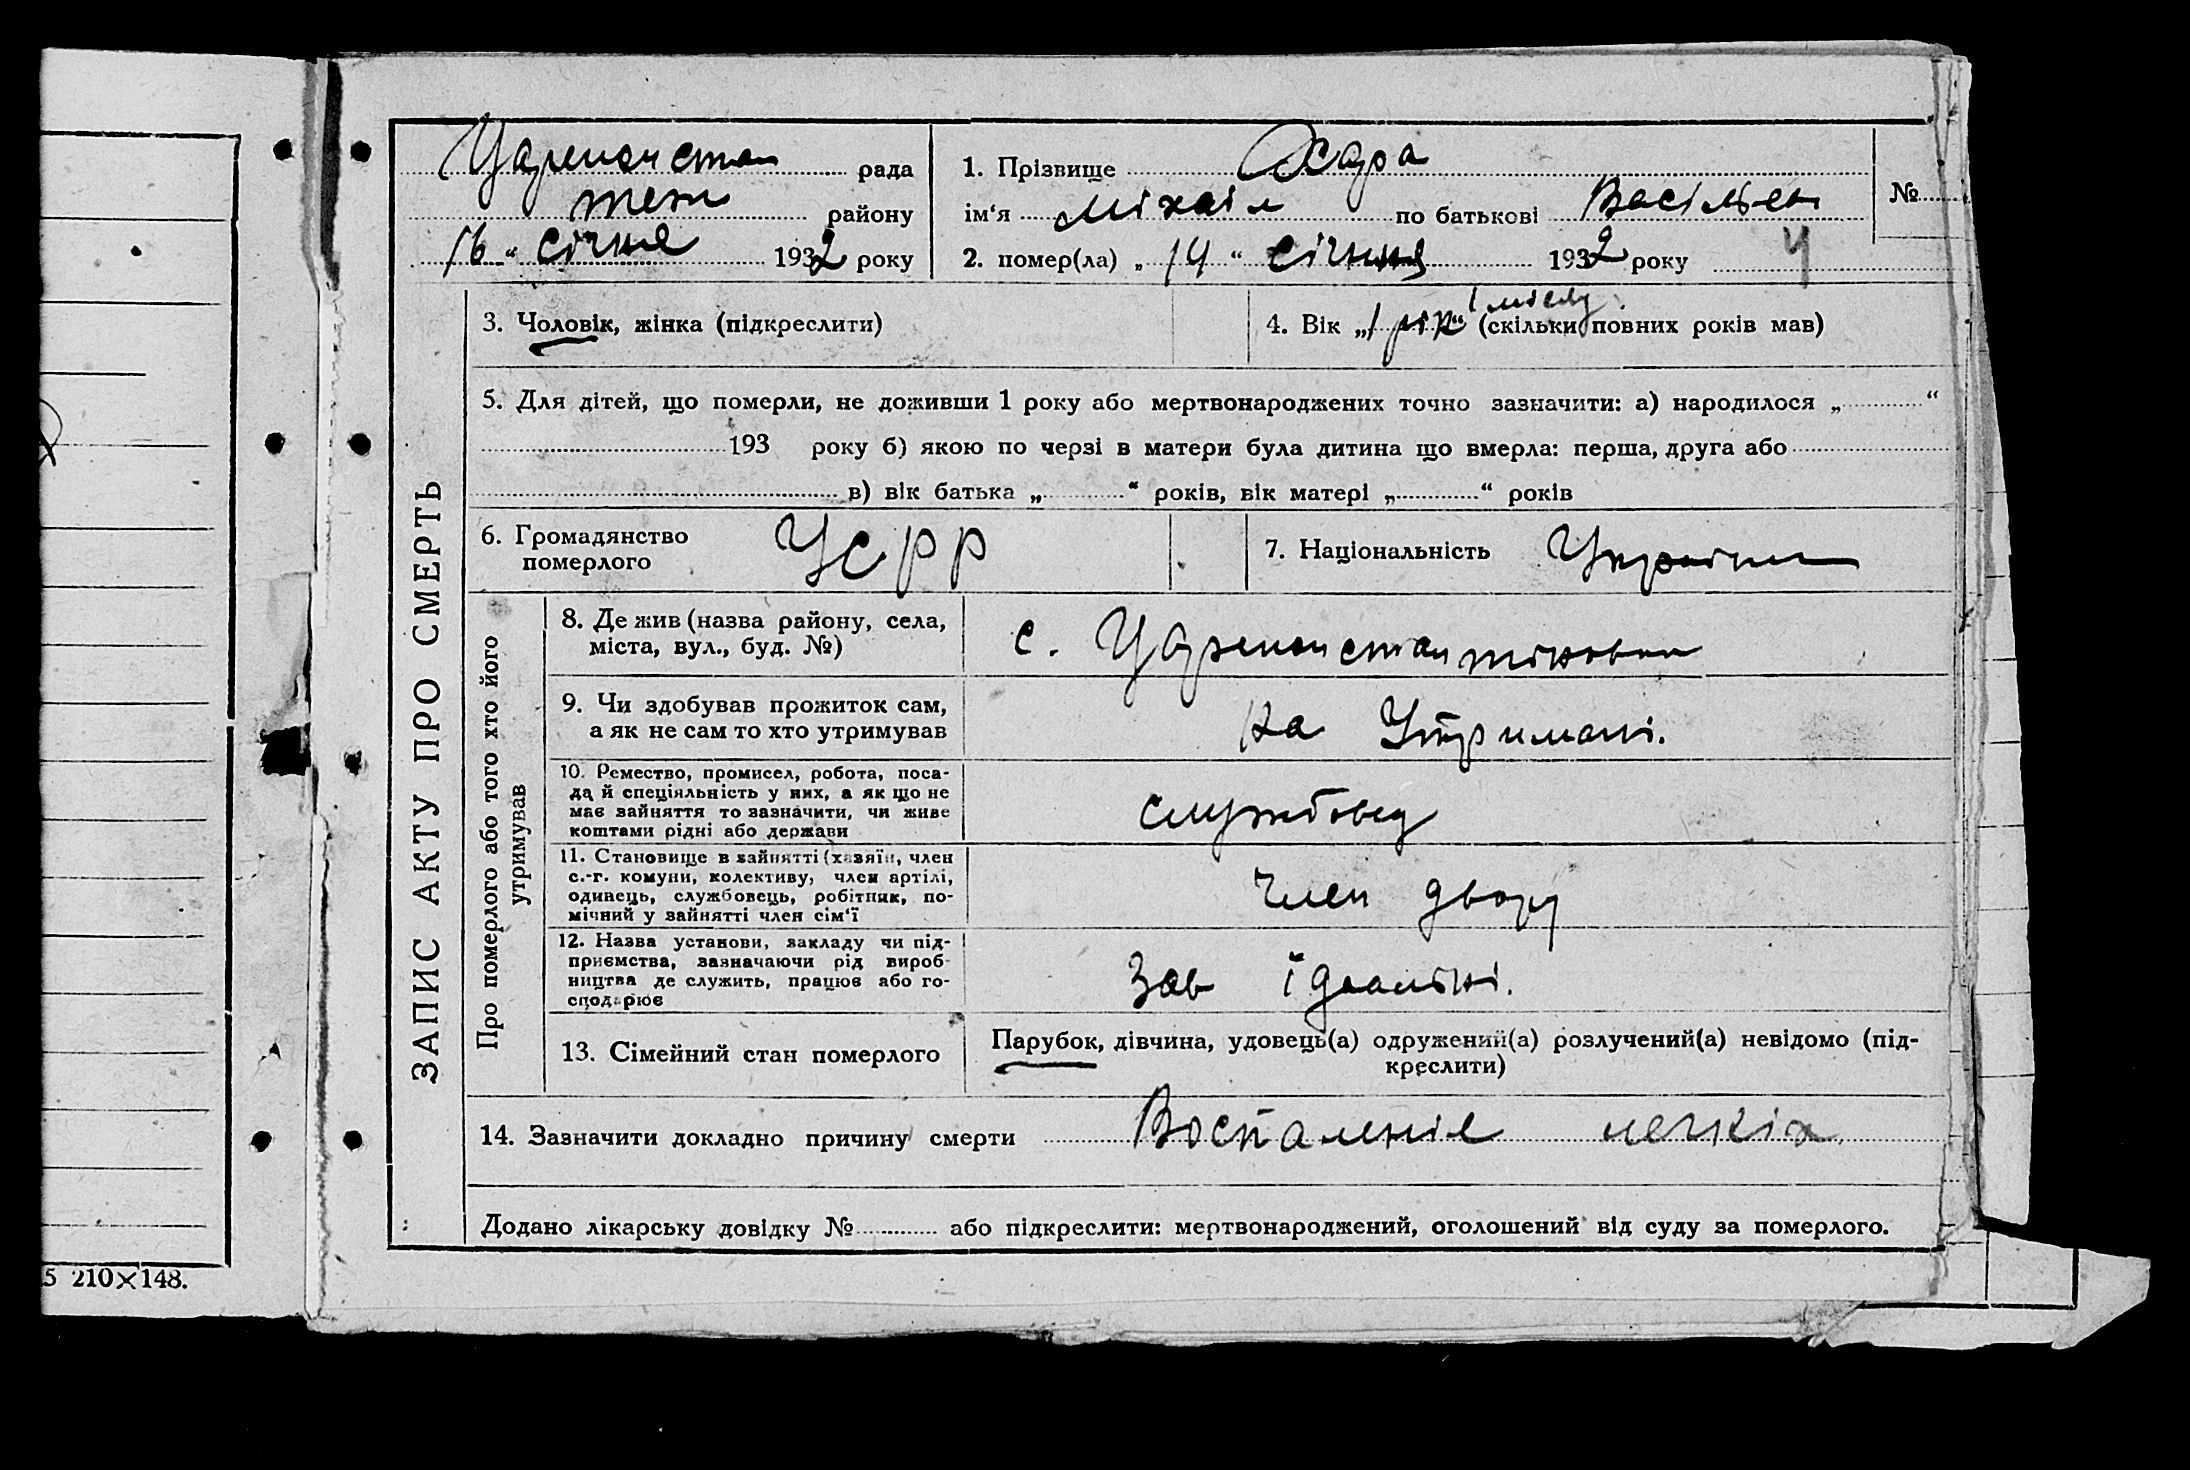 Цареконстан рада
теж району
16 “ січня 1932 року
1. Прізвище
ім‘я Міхаіл по батькові Васільев
2. помер(ла) „ 14 “ січння 1932 року
№
4
3. Чоловік, жінка (підкреслити)
4. Вік „1 рік“ 1 місяц (скільки повних років мав)
5. Для дітей, що померли, не доживши 1 року або мертвонароджених точно зазначити: а) народилося „ “
193 року б) якою по черзі в матери була дитина що вмерла: перша, друга або
в) вік батька „ “ років, вік матері „ “ років
6. Громадянство
померлого
УСРР
7. Національність
ЗАПИС АКТУ ПРО СМЕРТЬ
Про померлого або того хто його
утримував
8. Де жив (назва району, села,
міста, вул., буд. №)
с. Цареконстантіновка
9. Чи здобував прожиток сам,
а як не сам то хто утримував
на Утримані.
10. Ремество, промисел, робота, поса-
да й спеціяльність у них, а як що не
має зайняття то зазначити, чи живе
коштами рідні або держави
службовец
11. Становище в зайнятті (хазяїн, член
с.-г. комуни, колективу, член артілі,
одинець, службовець, робітник, по-
мічний у зайнятті член сім‘ї
член двору
12. Назва установи, закладу чи під-
приємства, зазначаючи рід вироб-
ництва де служить, працює або го-
сподарює
Зав їдальні.
13. Сімейний стан померлого
Парубок, дівчина, удовець(а) одружений(а) розлучений(а) невідомо (під-
креслити)
14. Зазначити докладно причину смерти Воспаленіе легкіх
Додано лікарську довідку № або підкреслити: мертвонароджений, оголошений від суду за померлого.
5 210×148.